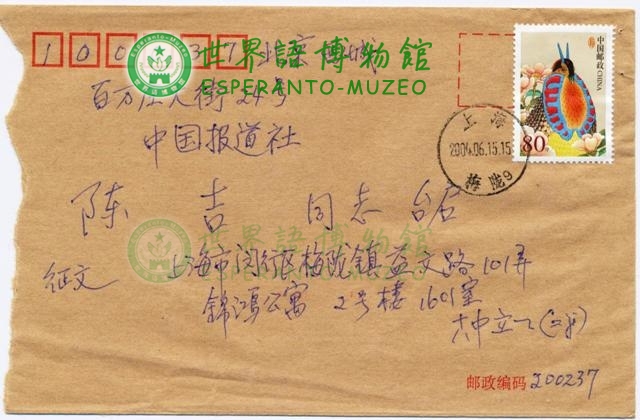 100 37 北京 城
世界語博物館
ESPERANTO-MUZEO
中国邮政
CHINA
80
百万庄大街24号
中国报道社
上海
2004.06.15.15
梅陇9
陈吉同志 启
世界語博物館
ESPERANTO-MUZEO
征文
上海市闵行区梅陇镇益文路101弄
锦鸿公寓 2号楼 1601室
邮政编码 200237